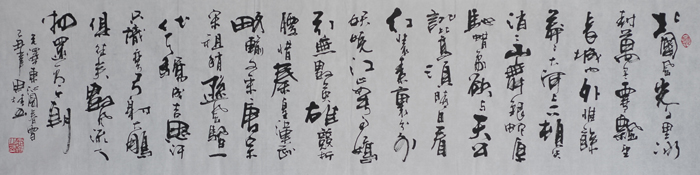 北國風光千里冰
封萬里雪飄望
長城內外惟餘
莽莽大河上下頓失
滔滔山舞銀蛇原
馳蠟象欲與天公
試比高須晴日看
紅裝素裹分外
妖嬈江山如此多嬌
引無數英雄競折
腰惜秦皇漢武
略輸文采唐宗
宋祖稍遜風騷一
代天驕成吉思汗
只識彎弓射大雕
俱往矣數風流人
物還看今朝
毛澤東沁園春雪